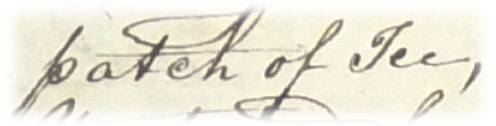 patch of Ice,